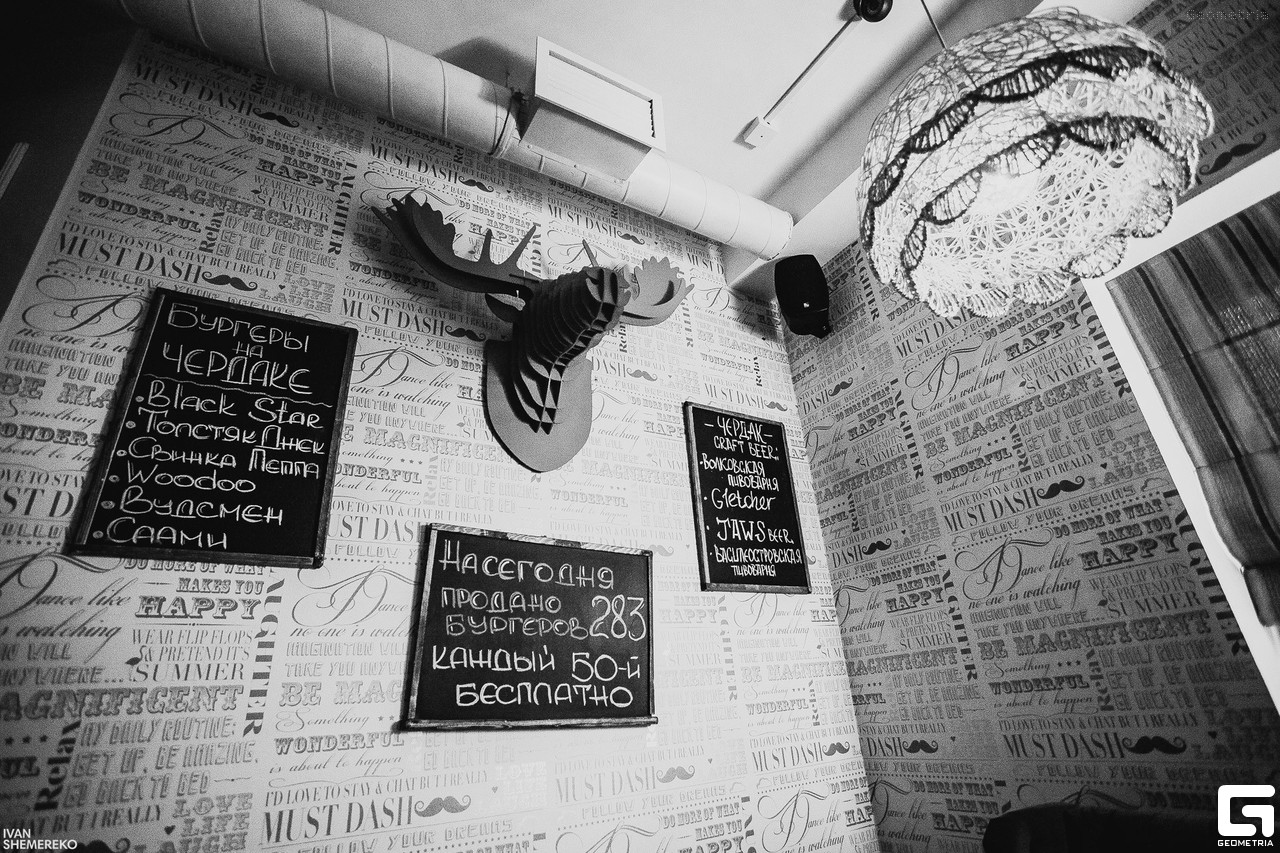 Geometria
БУРГЕРЫ
НА
ЧЕРДАКЕ
• Black Star
• Толстяк Джек
• Свинка Пеппа
• Woodoo
• Вудсмен
• Саами
На сегодня
продано
бургеров 283
каждый 50-й
БЕСПЛАТНО
– ЧЕРДАК –
CRAFT BEER:
• Волковская
пивоварня
• Gletcher
• JAWS BEER
• Василеостровская
пивоварня
MUST DASH
FOLLOW YOUR DREAMS
Dance like
no one is watching
IMAGINATION WILL
TAKE YOU ANYWHERE
BE MAGNIFICENT
Something
WONDERFUL
is about to happen
DO MORE OF WHAT
MAKES YOU
HAPPY
WEAR FLIP FLOPS
& PRETEND IT'S
SUMMER
LAUGHTER
Relax
MY DAILY ROUTINE:
GET UP, BE AMAZING,
GO BACK TO BED
I'D LOVE TO STAY & CHAT BUT I REALLY
MUST DASH
LOVE
LIFE
LAUGH
IVAN
SHEMEREKO
GEOMETRIA